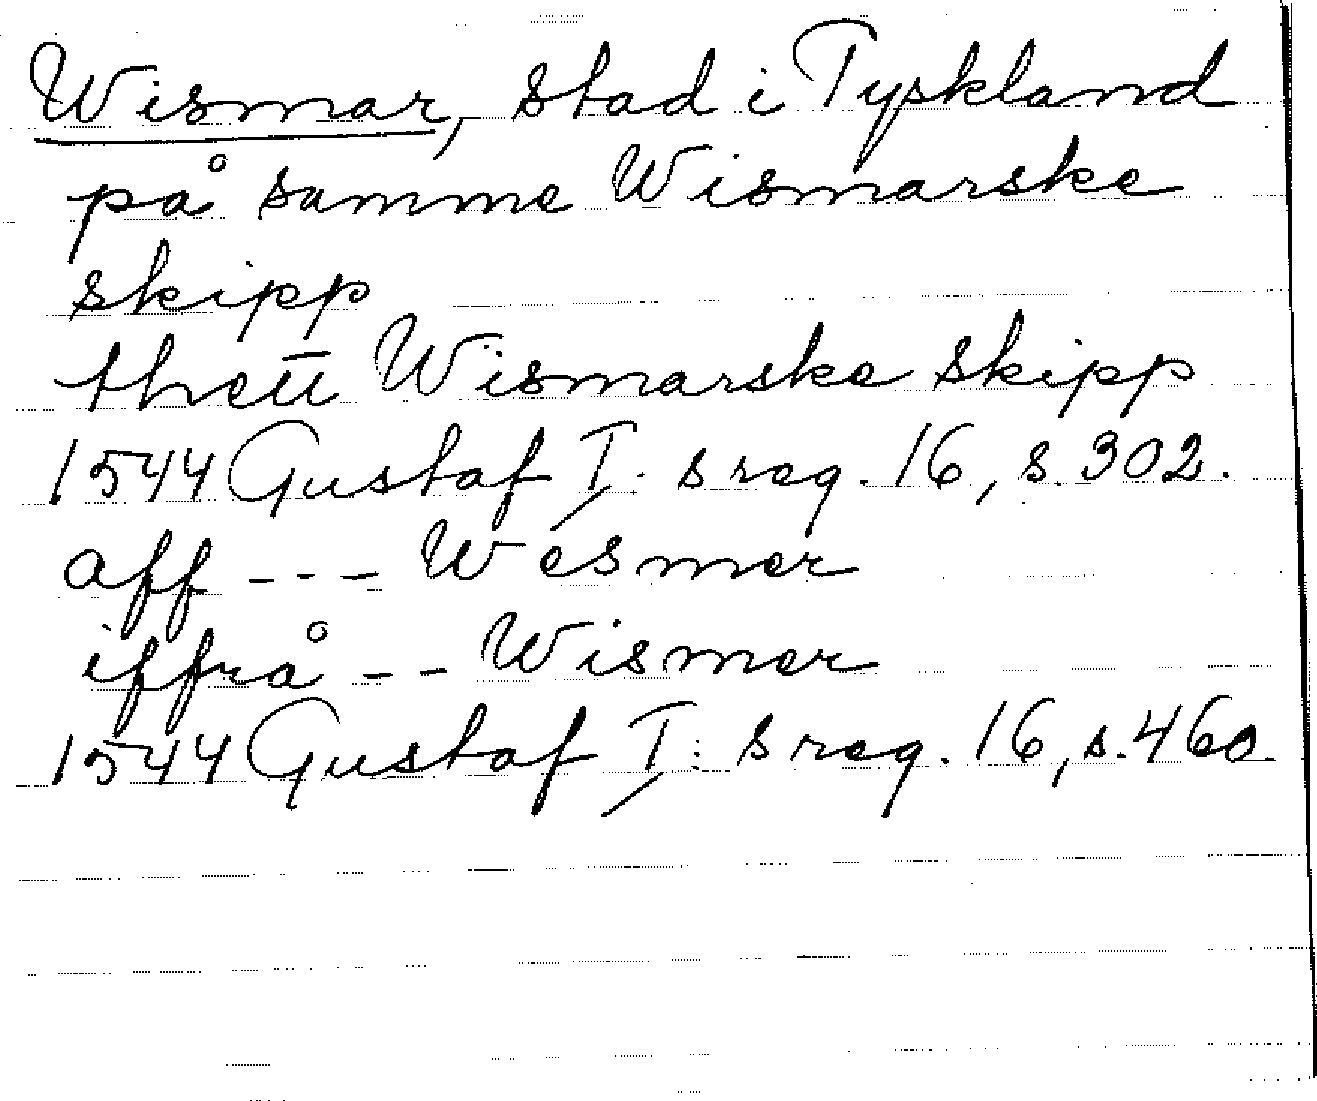 Wismar, stad i Tyskland
på samme Wismarske
skipp
thett Wismarske skipp
1544 Gustaf I: s reg. 16, s. 302.
aff --- Wesmer
iffrå -- Wismer
1544 Gustaf I: s reg. 16, s. 460